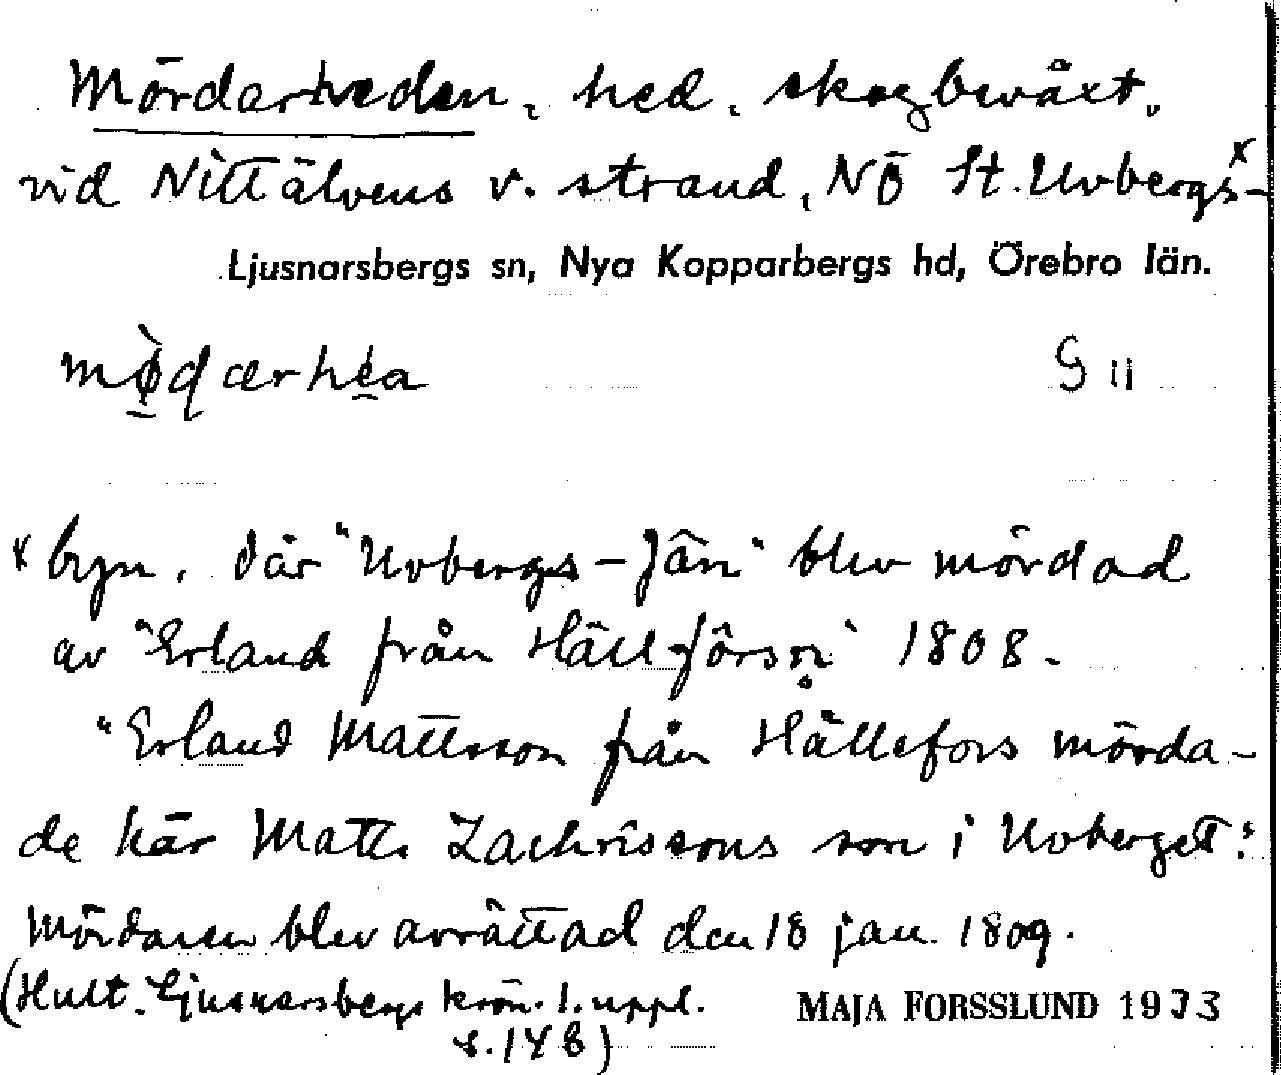 Mörderheden, hed, skogbeväxt,
vid Nittälvens v. strand, NÖ St. Uvbergs-x
Ljusnarsbergs sn, Nya Kopparbergs hd, Örebro län.
S 11
x byn, där "Uvbergs-Jän" blev mördad
av "Erland från Hällförsn" 1808.
"Erland Mattsson från Hällefors mörda-
de här Matts Zachrissons son i Uvberget."
Mördaren blev avrättad den 18 jan. 1809.
(Hult. Ljusnarsbergs krön. 1. uppl.
s. 148)
MAJA FORSSLUND 1933